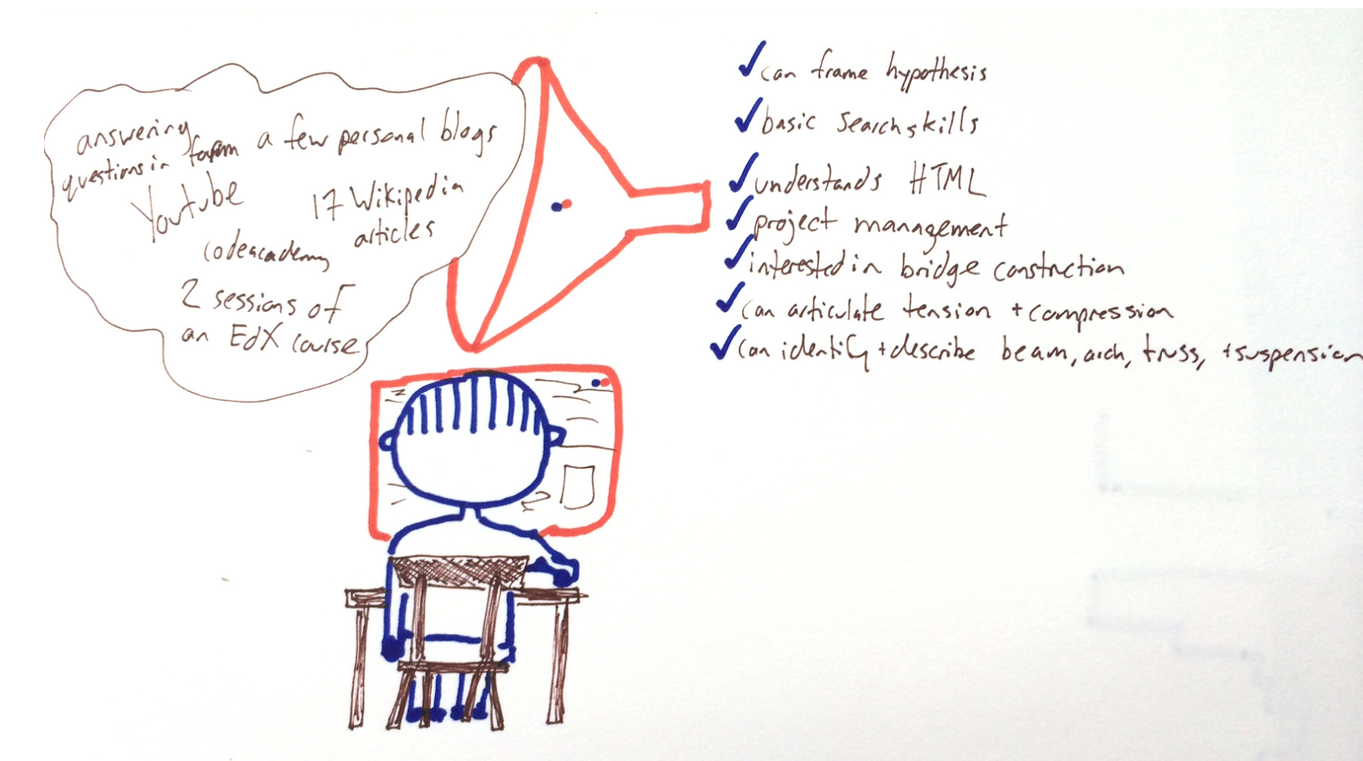 answering
questions in forum
a few personal blogs
Youtube
17 Wikipedia
articles
codeacademy
2 sessions of
an EdX course
✓can frame hypothesis
✓basic search skills
✓understands HTML
✓project management
✓interested in bridge constrction
✓can articulate tension + compression
✓can identify + describe beam, arch, truss, + suspension